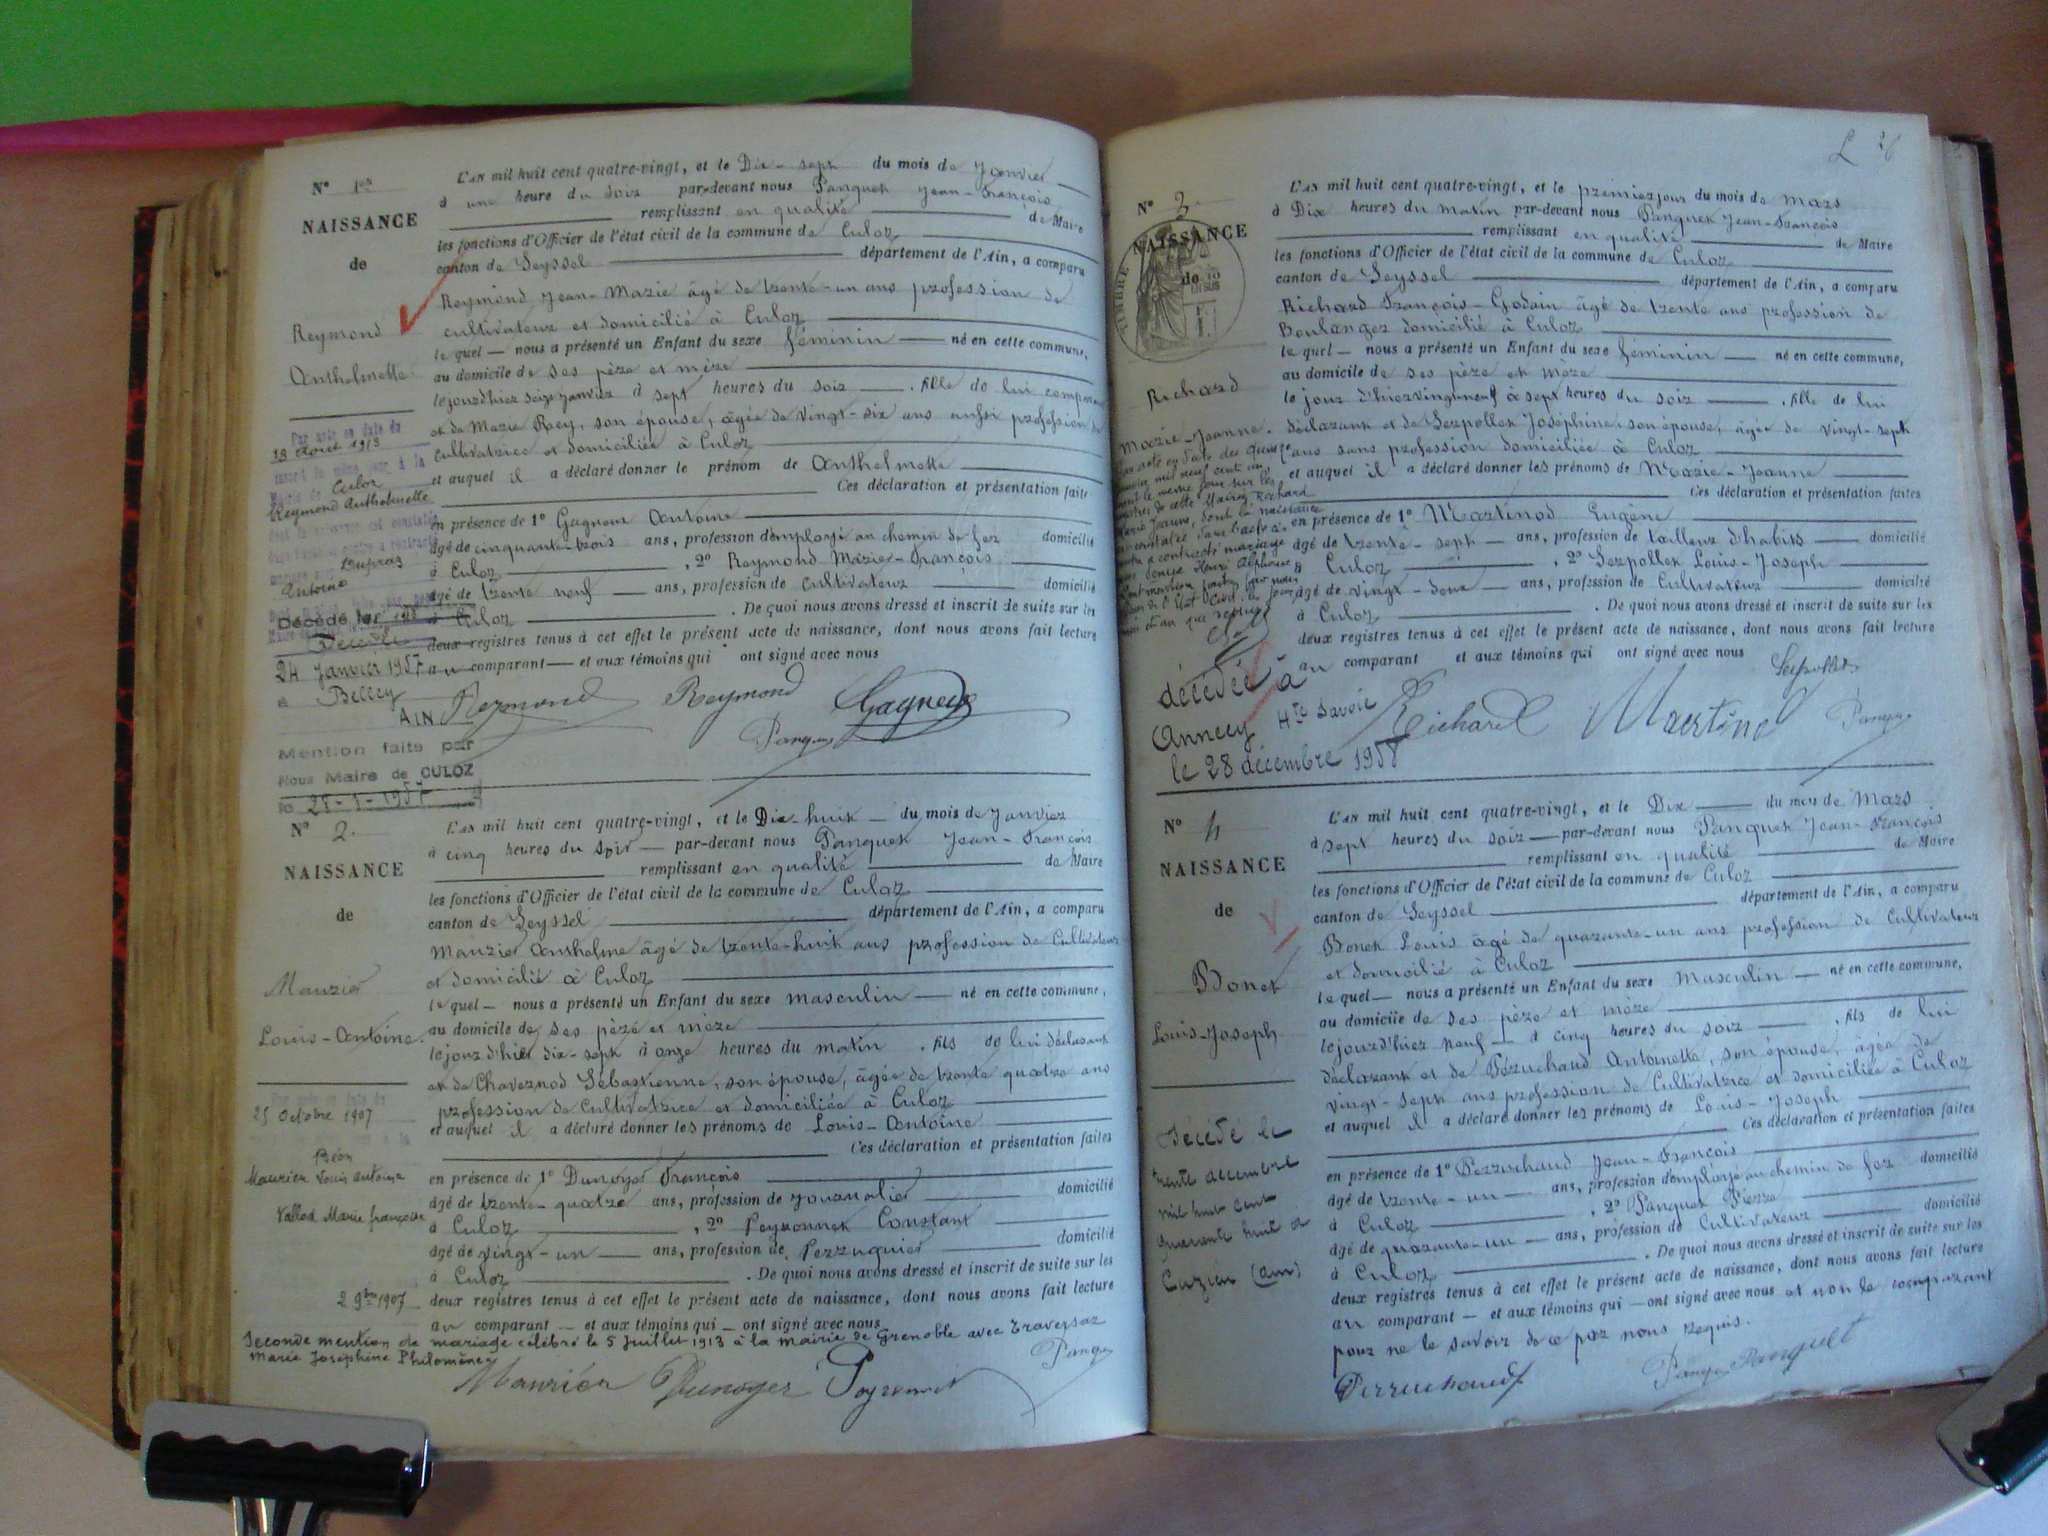 N° 1er
NAISSANCE
de
Reymond
Anthelmette
Par acte en date du
18 Août 1913
Culoz
Reymond Anthelmette
Dupras
Antoine
Décédée
24 Janvier 1957
à Belley
AIN
Mention faite par
Nous Maire de CULOZ
le 28-1-1957
L'AN mil huit cent quatre-vingt, et le Dix-sept du mois de Janvier
à une heure du soir par-devant nous Panquet Jean-François
remplissant en qualité de Maire
les fonctions d'Officier de l'état civil de la commune de Culoz
canton de Seyssel département de l'Ain, a comparu
Reymond Jean-Marie âgé de trente-un ans profession de
cultivateur et domicilié à Culoz
lequel nous a présenté un Enfant du sexe féminin né en cette commune,
au domicile de ses père et mère
le jour d'hier seize janvier à sept heures du soir, fille de lui comparant
et de Marie Rey, son épouse, âgée de vingt-six ans aussi profession de
cultivatrice et domiciliée à Culoz
et auquel il a déclaré donner le prénom de Anthelmette
Ces déclaration et présentation faites
en présence de 1° Gagneux Antoine
âgé de cinquante-trois ans, profession d'employé au chemin de fer domicilié
à Culoz, 2° Reymond Marie-François
âgé de trente neuf ans, profession de cultivateur domicilié
à Culoz. De quoi nous avons dressé et inscrit de suite sur les
deux registres tenus à cet effet le présent acte de naissance, dont nous avons fait lecture
au comparant et aux témoins qui ont signé avec nous
Reymond Reymond Gagneux
Panquet
N° 2
NAISSANCE
de
Maurier
Louis-Antoine
25 Octobre 1907
Béon
Maurier Louis Antoine
Vallod Marie françoise
2 9bre 1907
L'AN mil huit cent quatre-vingt, et le Dix-huit du mois de Janvier
à cinq heures du soir par-devant nous Panquet Jean-François
remplissant en qualité de Maire
les fonctions d'Officier de l'état civil de la commune de Culoz
canton de Seyssel département de l'Ain, a comparu
Maurier Anthelme âgé de trente-huit ans profession de Cultivateur
et domicilié à Culoz
lequel nous a présenté un Enfant du sexe masculin né en cette commune,
au domicile de ses père et mère
le jour d'hier dix-sept à onze heures du matin, fils de lui déclarant
et de Chavernod Sébastienne, son épouse, âgée de trente quatre ans
profession de Cultivatrice et domiciliée à Culoz
et auquel il a déclaré donner les prénoms de Louis-Antoine
Ces déclaration et présentation faites
en présence de 1° Dunoyer François
âgé de trente-quatre ans, profession de Journalier domicilié
à Culoz, 2° Peyronnet Constant
âgé de vingt-un ans, profession de Perruquier domicilié
à Culoz. De quoi nous avons dressé et inscrit de suite sur les
deux registres tenus à cet effet le présent acte de naissance, dont nous avons fait lecture
au comparant et aux témoins qui ont signé avec nous
Seconde mention de mariage célébré le 5 Juillet 1913 à la mairie de Grenoble avec Traversaz
Marie Joséphine Philomène
Maurier Dunoyer Peyronnet
Panquet
L 26
N° 3
NAISSANCE
de
TIMBRE
Richard
Marie-Jeanne
décédée à
Annecy Hte Savoie
le 28 décembre 1958
L'AN mil huit cent quatre-vingt, et le premier jour du mois de Mars
à Dix heures du matin par-devant nous Panquet Jean-François
remplissant en qualité de Maire
les fonctions d'Officier de l'état civil de la commune de Culoz
canton de Seyssel département de l'Ain, a comparu
Richard François-Godain âgé de trente ans profession de
Boulanger domicilié à Culoz
lequel nous a présenté un Enfant du sexe féminin né en cette commune,
au domicile de ses père et mère
le jour d'hier vingt neuf à sept heures du soir, fille de lui
déclarant et de Serpollet Joséphine, son épouse, âgée de vingt-sept
ans sans profession domiciliée à Culoz
et auquel il a déclaré donner les prénoms de Marie-Jeanne
Ces déclaration et présentation faites
en présence de 1° Martinod Eugène
âgé de trente-sept ans, profession de tailleur d'habits domicilié
à Culoz, 2° Serpollet Louis-Joseph
âgé de vingt-deux ans, profession de Cultivateur domicilié
à Culoz. De quoi nous avons dressé et inscrit de suite sur les
deux registres tenus à cet effet le présent acte de naissance, dont nous avons fait lecture
au comparant et aux témoins qui ont signé avec nous
Serpollet
Richard Martinod Panquet
N° 4
NAISSANCE
de
Bonet
Louis-Joseph
Décédé le
trente décembre
mil neuf cent
quarante huit à
Cuzieu (Ain)
L'AN mil huit cent quatre-vingt, et le Dix du mois de Mars
à sept heures du soir par-devant nous Panquet Jean-François
remplissant en qualité de Maire
les fonctions d'Officier de l'état civil de la commune de Culoz
canton de Seyssel département de l'Ain, a comparu
Bonet Louis âgé de quarante-un ans profession de Cultivateur
et domicilié à Culoz
lequel nous a présenté un Enfant du sexe Masculin né en cette commune,
au domicile de ses père et mère
le jour d'hier neuf à cinq heures du soir, fils de lui
déclarant et de Péruchaud Antoinette, son épouse, âgée de
vingt-sept ans profession de Cultivatrice et domiciliée à Culoz
et auquel il a déclaré donner les prénoms de Louis-Joseph
Ces déclaration et présentation faites
en présence de 1° Perruchaud Jean-François
âgé de trente-un ans, profession d'employé au chemin de fer domicilié
à Culoz, 2° Panquet Pierre
âgé de quarante-un ans, profession de Cultivateur domicilié
à Culoz. De quoi nous avons dressé et inscrit de suite sur les
deux registres tenus à cet effet le présent acte de naissance, dont nous avons fait lecture
au comparant et aux témoins qui ont signé avec nous et non le comparant
pour ne le savoir de ce par nous requis.
Perruchaud Panquet Panquet